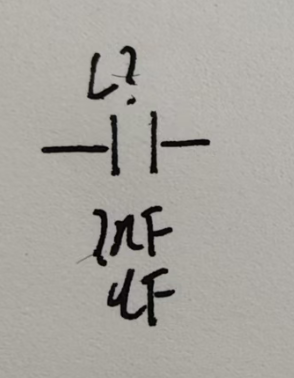 C?
1nF
uF